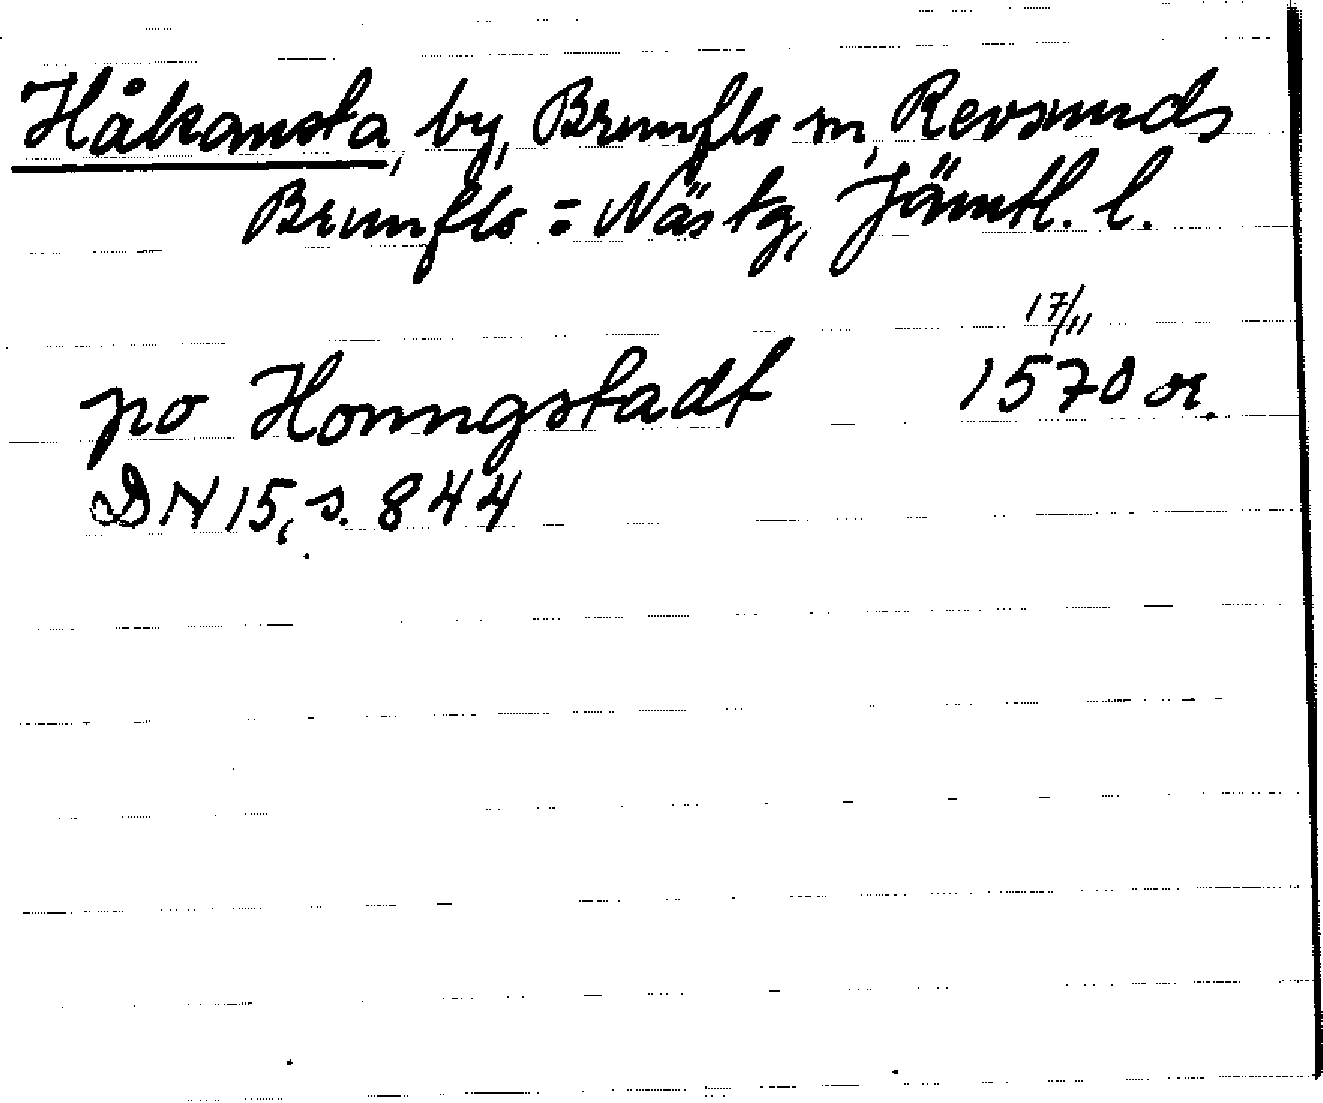 Håkansta, by, Brunflo sn, Revsunds
Brunflo = Näs tg, Jämtl. l.
17/11
po Honngstadt 1570 or.
DN 15, s. 844